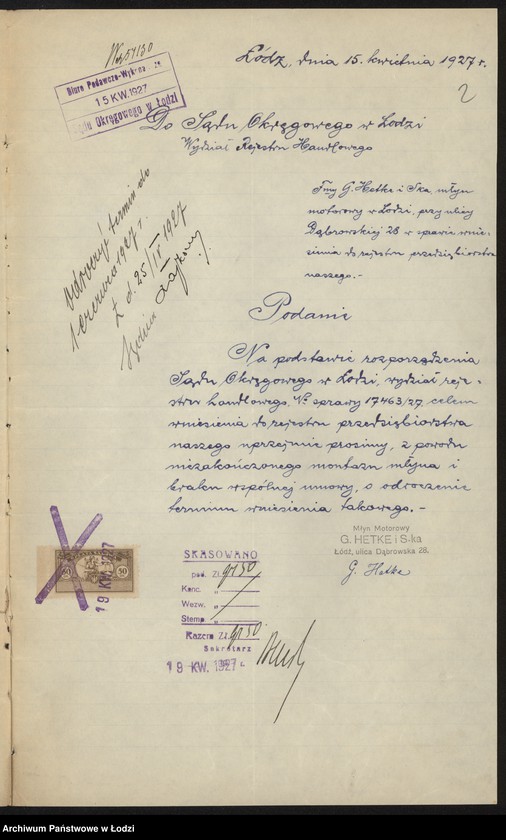 Łódź, dnia 15. kwietnia 1927 r.
2
Biuro Podawczo-Wyk
15 KW.1927
Sądu Okręgowego w Łodzi
Do Sądu Okręgowego w Łodzi
Wydział Rejestru Handlowego
Fmy G. Hetke i Ska, młyn
motorowy w Łodzi, przy ulicy
Dąbrowskiej 28 w sprawie wnie-
sienia do rejestru przedsiębiorstwa
naszego.-
odroczyć termin do
1 czerwca 1927 r.
Ł d. 25/IV 1927
Podanie
Na podstawie rozporządzenia
Sądu Okręgowego w Łodzi, wydział reje-
stru handlowego, Nr. sprawy 17463/27, celem
wniesienia do rejestru przedsiębiorstwa
naszego uprzejmie prosimy, z powodu
niezakończonego montażu młyna i
braku wspólnej umowy, o odroczenie
terminu wniesienia takowego.-
Młyn Motorowy
G. HETKE i S-ka
Łódź, ulica Dąbrowska 28.
G. Hetke
50 50
19 KW. 1927
SKASOWANO
pod. Zł. gr 50
Kanc. "
Wezw. "
Stemp "
Razem Zł. gr 50.
Sekretarz
19 KW. 1927 r.
Archiwum Państwowe w Łodzi